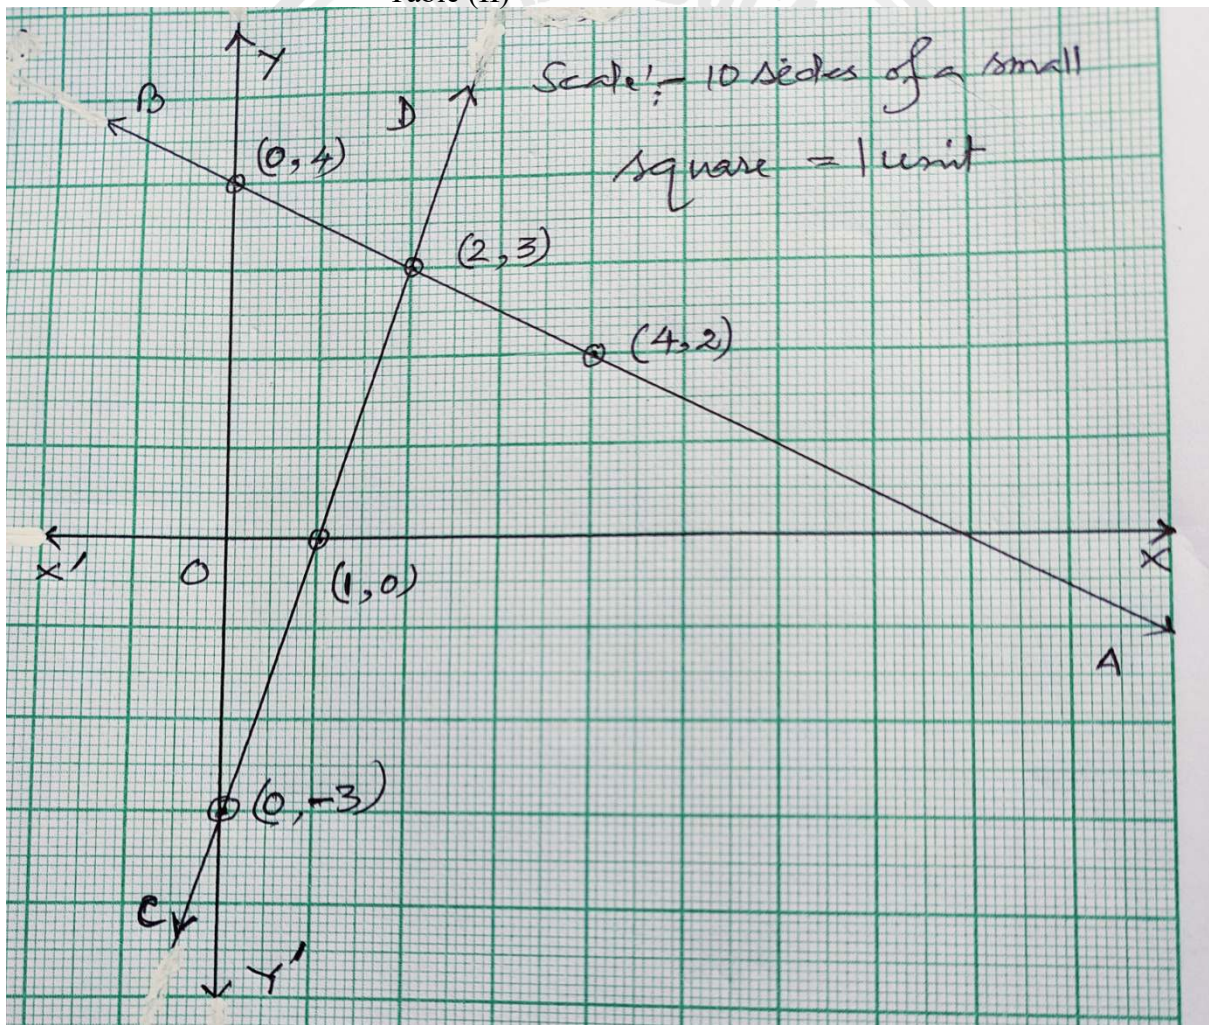 Table (II)
Y
B
D
Scale:- 10 sides of a small
square = 1 unit
(0,4)
(2,3)
(4,2)
X'
O
(1,0)
X
A
(0,-3)
C
Y'